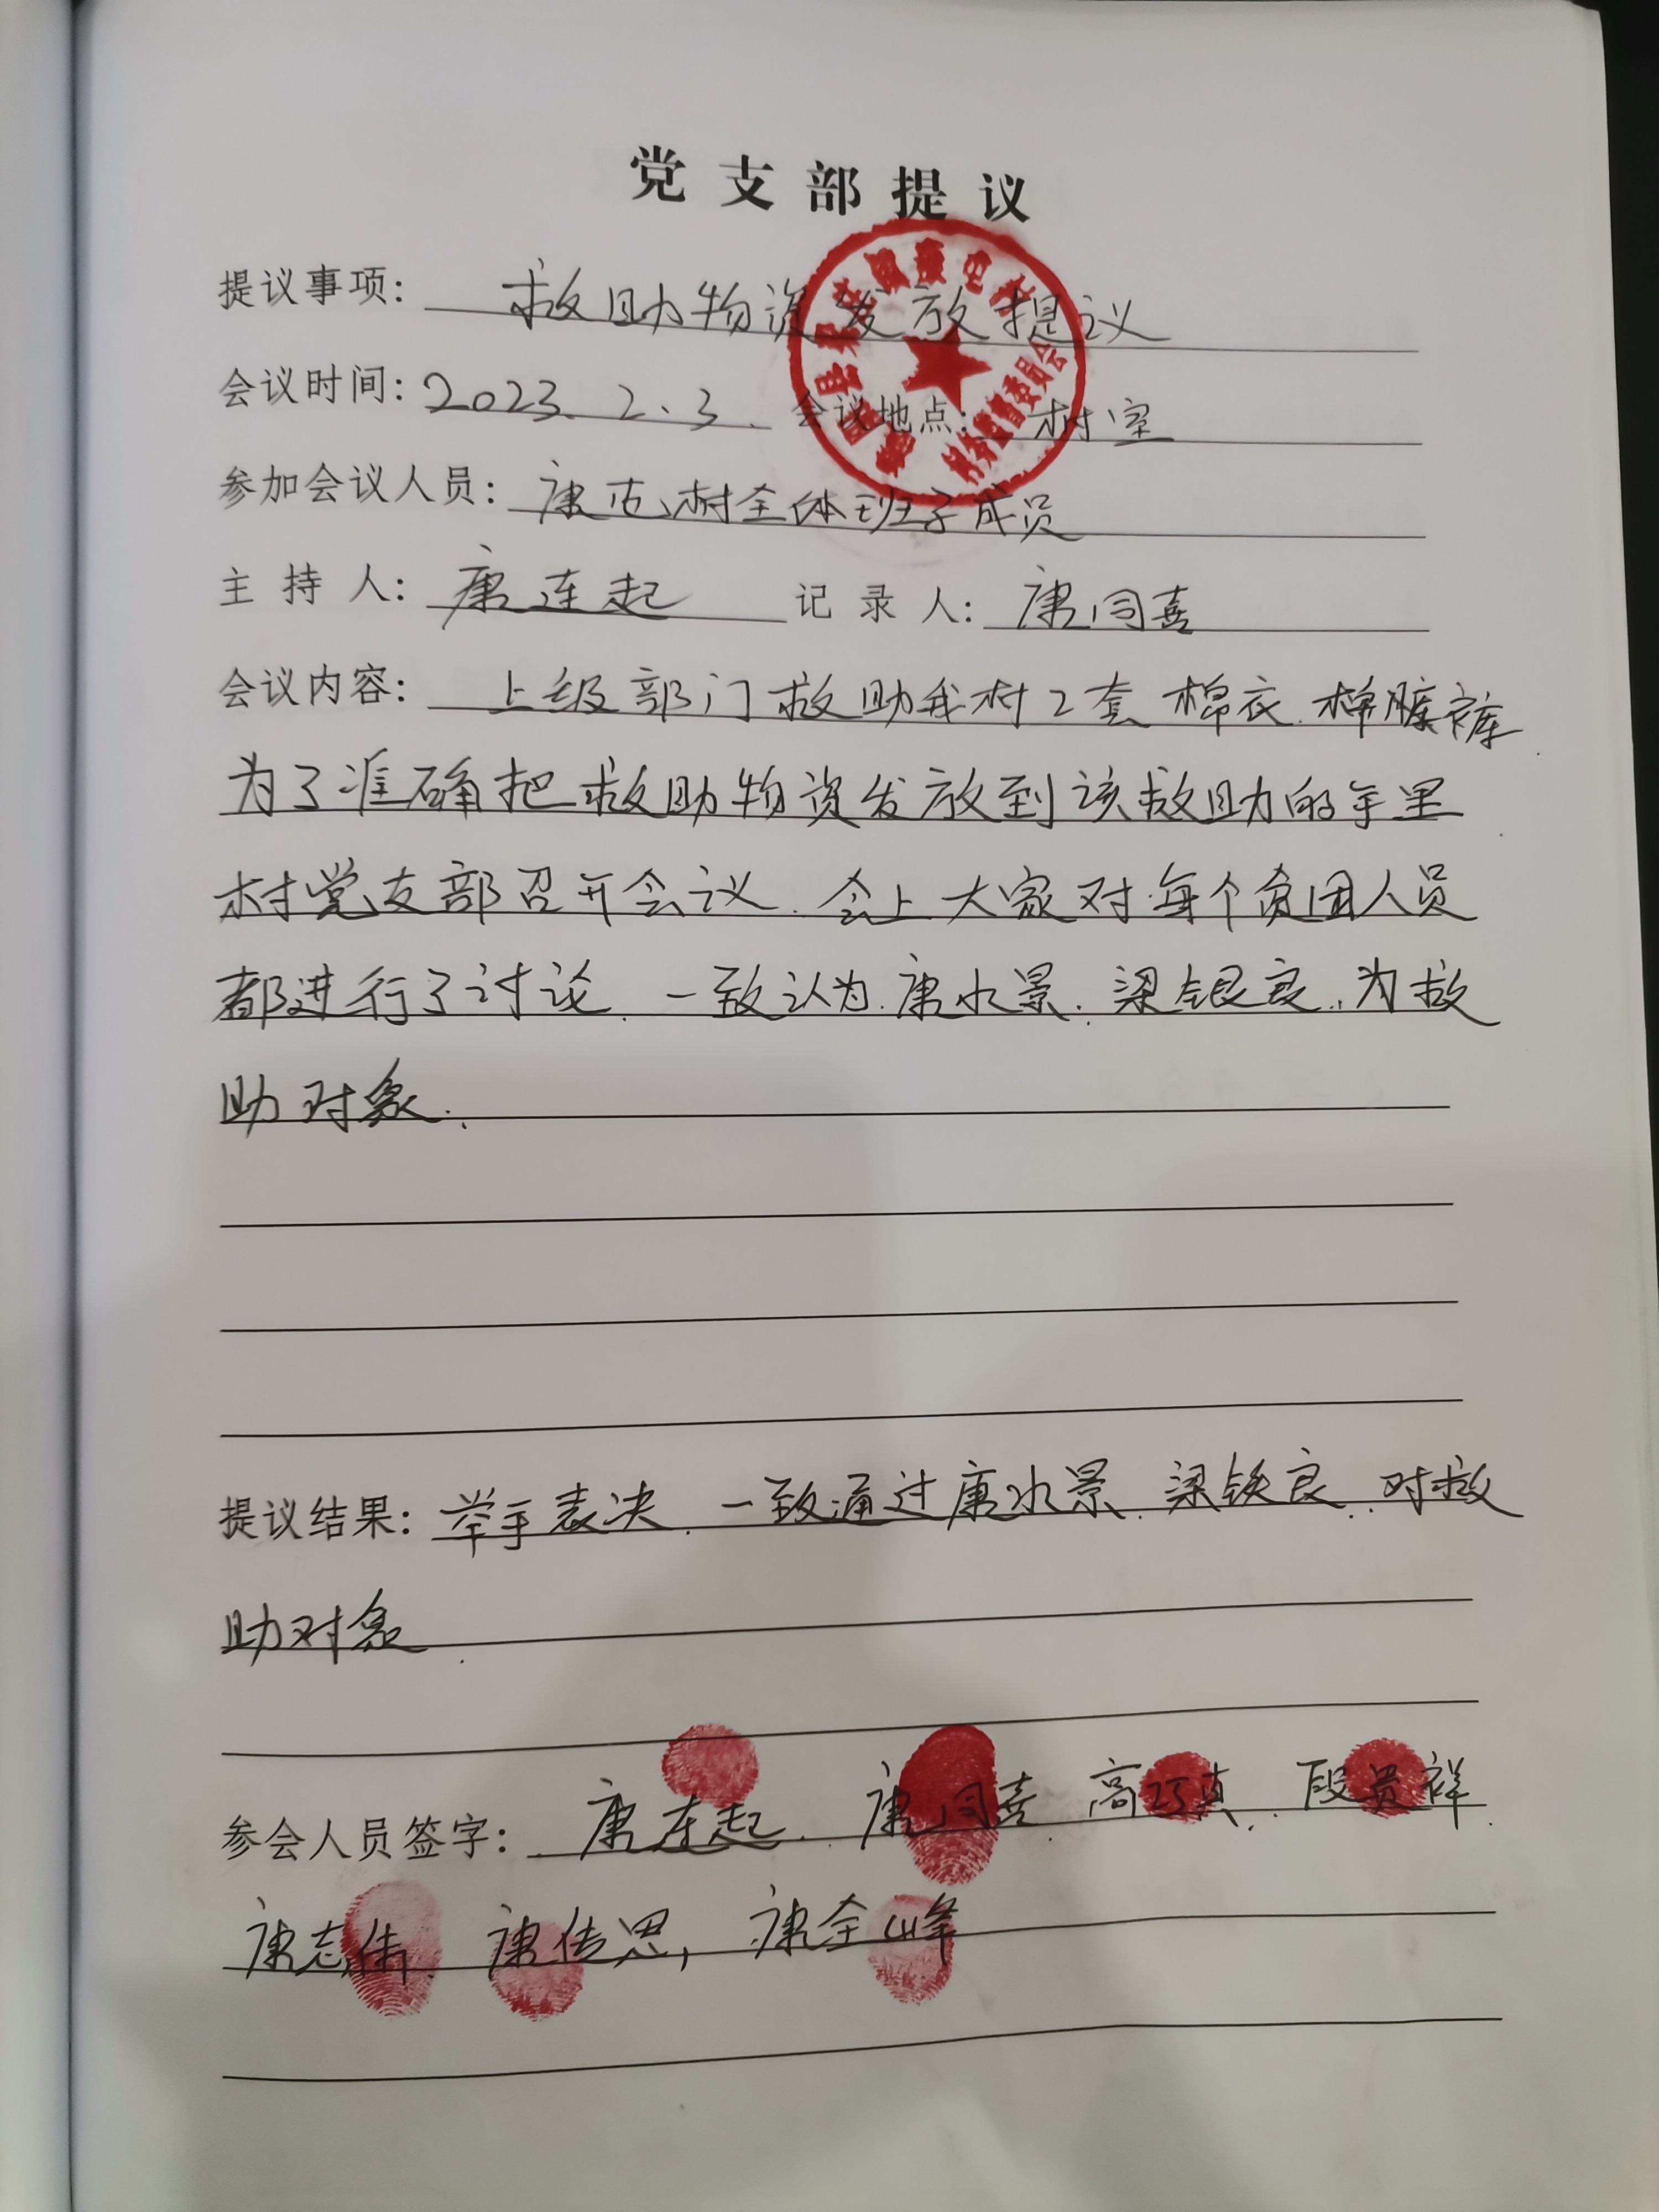 党支部提议
提议事项：救助物资发放提议
会议时间：2023.2.3. 会议地点：村室
参加会议人员：康屯村全体班子成员
主持人：康连起 记录人：康同喜
会议内容：上级部门救助我村2套棉衣.棉裤
为了准确把救助物资发放到该救助的手里
村党支部召开会议.会上大家对每个贫困人员
都进行了讨论.一致认为.康水景.梁银良.为救
助对象.
提议结果：举手表决.一致通过康水景.梁铁良.对救
助对象.
参会人员签字：康连起.康同喜.高巧真.段贵祥.
康志伟.康传思,康全峰
村务监督委员会